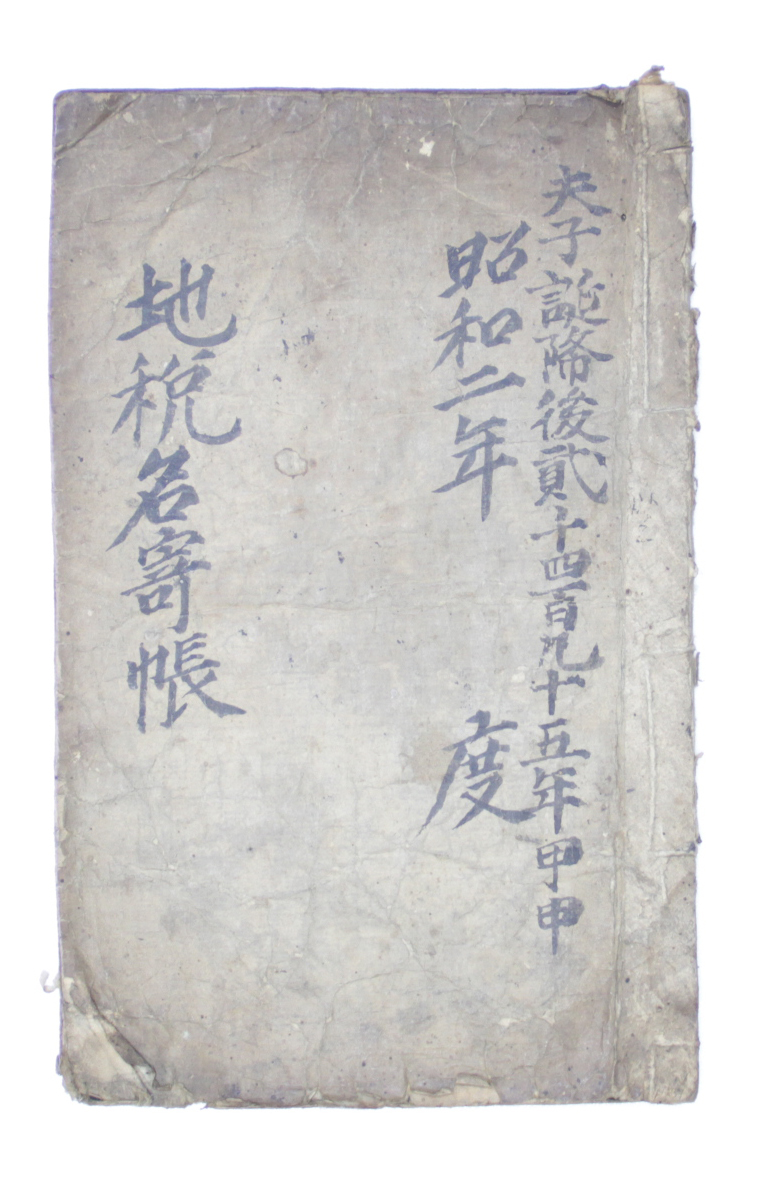 夫子誕降後貳千四百九十五年甲申
昭和二年度
地稅名寄帳